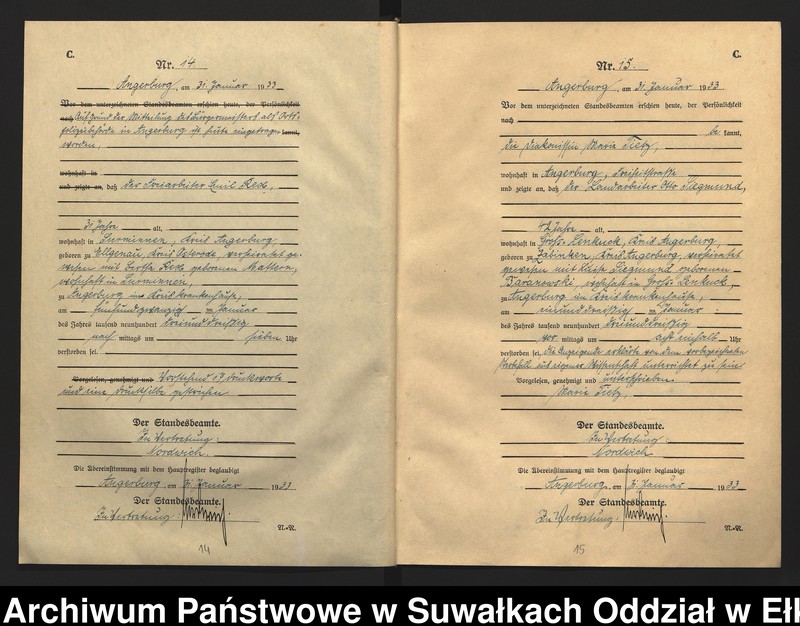 C.
Nr. 14
Angerburg, am 31. Januar 1933
Vor dem unterzeichneten Standesbeamten erschien heute, der Persönlichkeit
nach Auf Grund der Mitteilung des Bürgermeisters als Orts-
polizeibehörde in Angerburg ist heute eingetragen kannt,
worden,
wohnhaft in
und zeigte an, daß der Freiarbeiter Emil Reck,
31 Jahre alt,
wohnhaft in Surminnen, Kreis Angerburg
geboren zu Ellgenau, Kreis Osterode, verheiratet ge-
wesen mit Bertha Reck geborenen Mattern,
wohnhaft in Surminnen,
zu Angerburg im Kreiskrankenhause,
am fünfundzwanzig Januar
des Jahres tausend neunhundert dreiunddreißig
nach mittags um sieben Uhr
verstorben sei.
Vorgelesen, genehmigt und Vorstehend 19 Druckworte
und eine Drucksilbe gestrichen.
Der Standesbeamte.
In Vertretung:
Nordwich.
Die Übereinstimmung mit dem Hauptregister beglaubigt
Angerburg, am 31. Januar 1933
Der Standesbeamte.
In Vertretung:
N.-R.
14
C.
Nr. 15.
Angerburg, am 31. Januar 1933
Vor dem unterzeichneten Standesbeamten erschien heute, der Persönlichkeit
nach
be kannt,
die Diakonissin Maria Tietz,
wohnhaft in Angerburg, Freiheitstraße
und zeigte an, daß der Landarbeiter Otto Siegmund,
42 Jahre alt,
wohnhaft in Groß Lenkuck, Kreis Angerburg,
geboren zu Zabinken, Kreis Angerburg, verheiratet
gewesen mit Luise Siegmund geborenen
Baranowski, wohnhaft in Groß Lenkuck,
zu Angerburg im Kreiskrankenhause,
am einunddreißig Januar
des Jahres tausend neunhundert dreiunddreißig
vor mittags um acht einhalb Uhr
verstorben sei. Die Anzeigende erklärte von dem vorbezeichneten
Sterbefall aus eigener Wissenschaft unterrichtet zu sein.
Vorgelesen, genehmigt und unterschrieben.
Maria Tietz.
Der Standesbeamte.
In Vertretung:
Nordwich
Die Übereinstimmung mit dem Hauptregister beglaubigt
Angerburg, am 31. Januar 1933
Der Standesbeamte.
In Vertretung:
N.-R.
15
Archiwum Państwowe w Suwałkach Oddział w Ełk